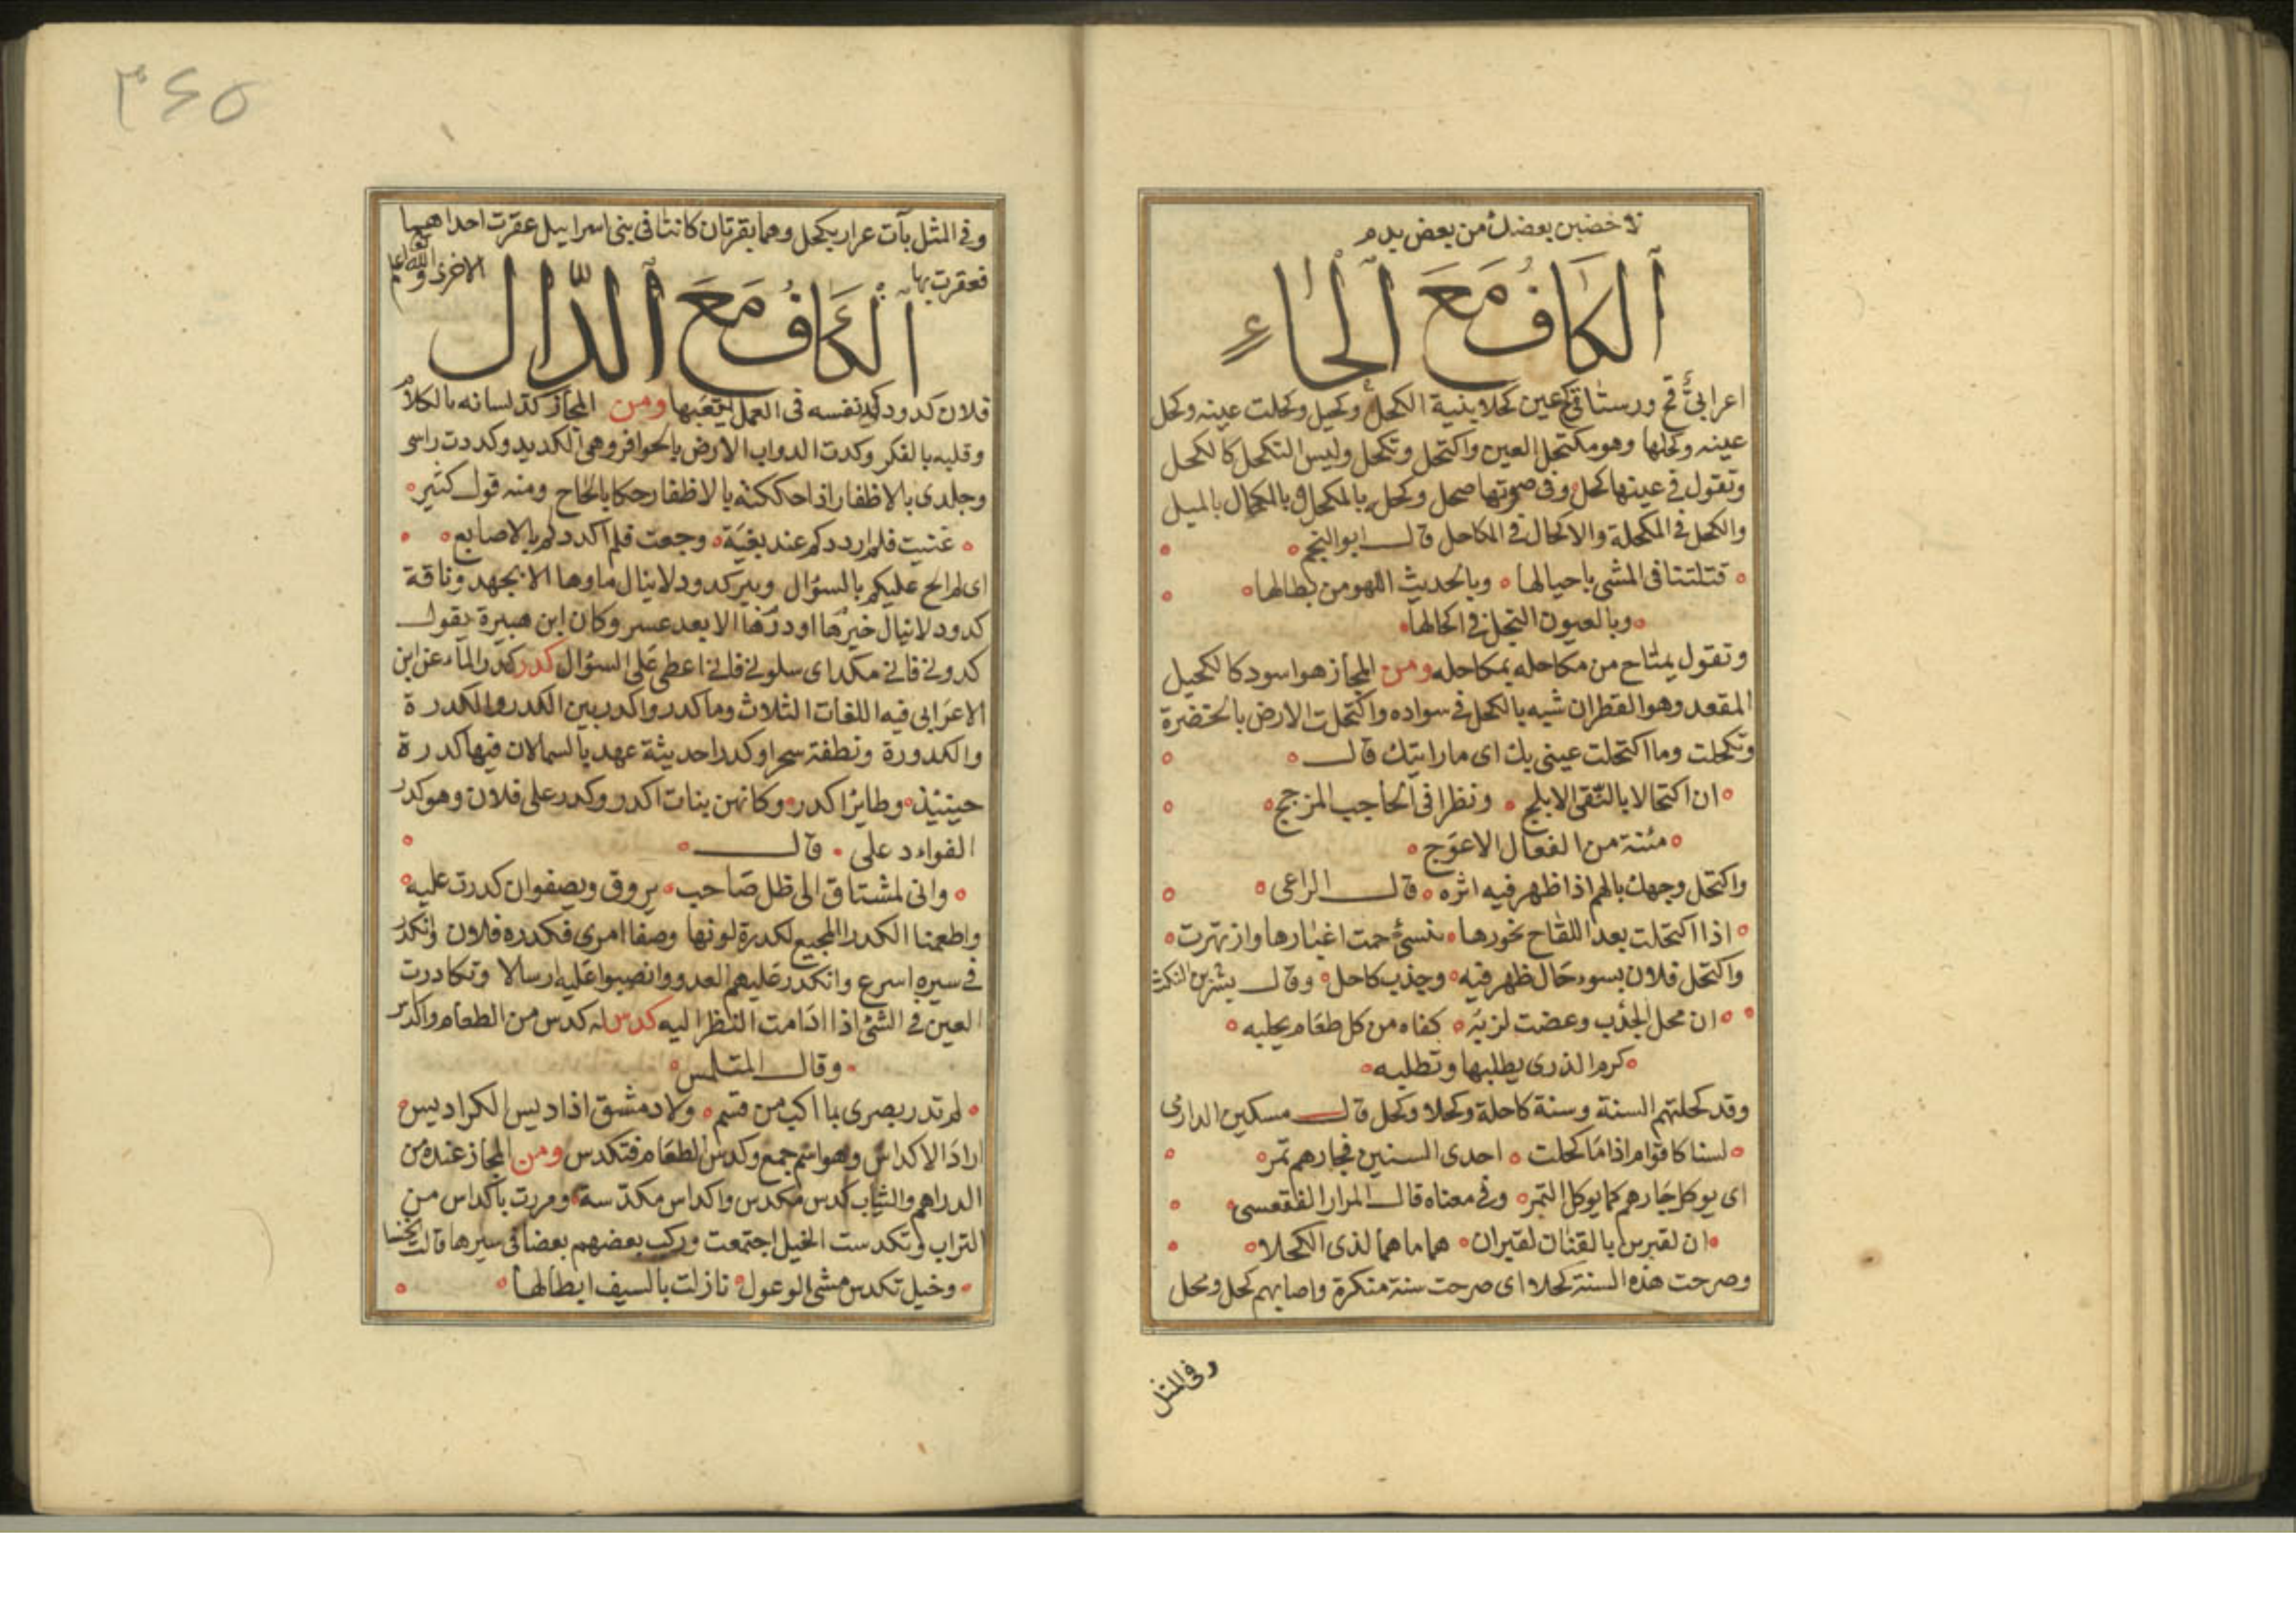 لاخضبن بعضك من بعض بدم
الكاف مع الحاء
اعرابى قح ورستاقى كح عين كحلا بنية الكحل وكحيل وكحلت عينه وكحل
عينه وكحلها وهو مكتحل العين واكتحل وتكحل وليس التكحل كالكحل
وتقول فى عينها كحل وفى صوتها صحل وكحل بالمكحل وبالمكحال بالميل
والكحل فى المكحلة والاكحال فى المكاحل قال ابو النجم
قتلتنا فى المشى باحيالها وبالحديث اللهو من بطالها
وبالعيون النجل فى اكحالها
وتقول يمتاح من مكاحله بمكاحله ومن المجاز هو اسود كالكحيل
المقعد وهو القطران شبه بالكحل فى سواده واكتحلت الارض بالخضرة
وتكحلت وما اكتحلت عينى بك اى ما رايتك قال
ان اكتحالا بالنقى الابلج ونظرا فى الحاجب المزجج
مئنة من الفعال الاعوج
واكتحل وجهك بالهم اذا ظهر فيه اثره قال الراعى
اذا اكتحلت بعد اللقاح نحورها بنسئ حمت اغبارها وازمهرت
واكتحل فلان بسوء حال ظهر فيه وجذب كاحل وقال بشر بن النكث
ان محل الجدب وعضت لزبه كفاه من كل طعام يجلبه
كرم الذرى يطلبها وتطلبه
وقد كحلتهم السنة وسنة كاحلة وكحلا وكحل قال مسكين الدارمى
لسنا كاقوام اذا ما كحلت احدى السنين فجارهم تمر
اى يوكل جارهم كما يوكل التمر وفى معناه قال المرار الفقعسى
ان لقبرس بالقنان لقبران هما ما هما لذى الكحلا
وصرحت هذه السنة كحلا اى صرحت سنة منكرة واصابهم كحل ومحل
وفى المثل
٣٤٥
وفى المثل بآت عرار بكحل وهما بقرتان كانتا فى بنى اسرايل عقرت احداهما
فعقرت بها الاخرى والله اعلم
الكاف مع الدال
فلان كدود يكد نفسه فى العمل يتعبها ومن المجاز كد لسانه بالكلام
وقلبه بالفكر وكدت الدواب الارض بالحوافر وهى الكديد وكددت راسى
وجلدى بالاظفار اذا حككته بالاظفار حكا بالحاح ومنه قول كثير
غنيت فلم ارددكم عند بغية وجعت فلم اكددكم بالاصابع
اى لم الح عليكم بالسؤال وبير كدود لا ينال ماوها الا بجهد وناقة
كدود لا ينال خيرها او درها الا بعد عسر وكان ابن هبيرة يقول
كدونى فانى مكد اى سلونى فانى اعطى على السؤال كدر كدر المآء عن ابن
الاعرابى فيه اللغات الثلاث وماكدر واكدر بين الكدر والكدرة
والكدورة ونطفة سجرا وكدرا حديثة عهد بالسمالان فيها كدرة
حينيذ وطاير اكدر وكانهن بنات اكدر وكدر على فلان وهو كدر
الفواد على قال
وانى لمشتاق الى ظل صاحب يروق ويصفوان كدرت عليه
واطعمنا الكدرا المجيع لكدرة لونها وصفا امرى فكدره فلان وانكدر
فى سيره اسرع وانكدر عليهم العدو وانصبوا عليه ارسالا وتكادرت
العين فى الشئ اذا ادامت النظر اليه كدس له كدس من الطعام واكدس
وقال المتلمس
لم تدر بصرى بما اكبت من قسم ولا دمشق اذا ديس الكراديس
اراد الاكداس وهو اسم جمع وكدس الطعام فتكدس ومن المجاز عنده من
الدراهم والثياب كدس مكدس واكداس مكدسة ومررت باكداس من
التراب وتكدست الخيل اجتمعت وركب بعضهم بعضا فى سيرها قالت الخنسا
وخيل تكدس مشى الوعول نازلت بالسيف ابطالها